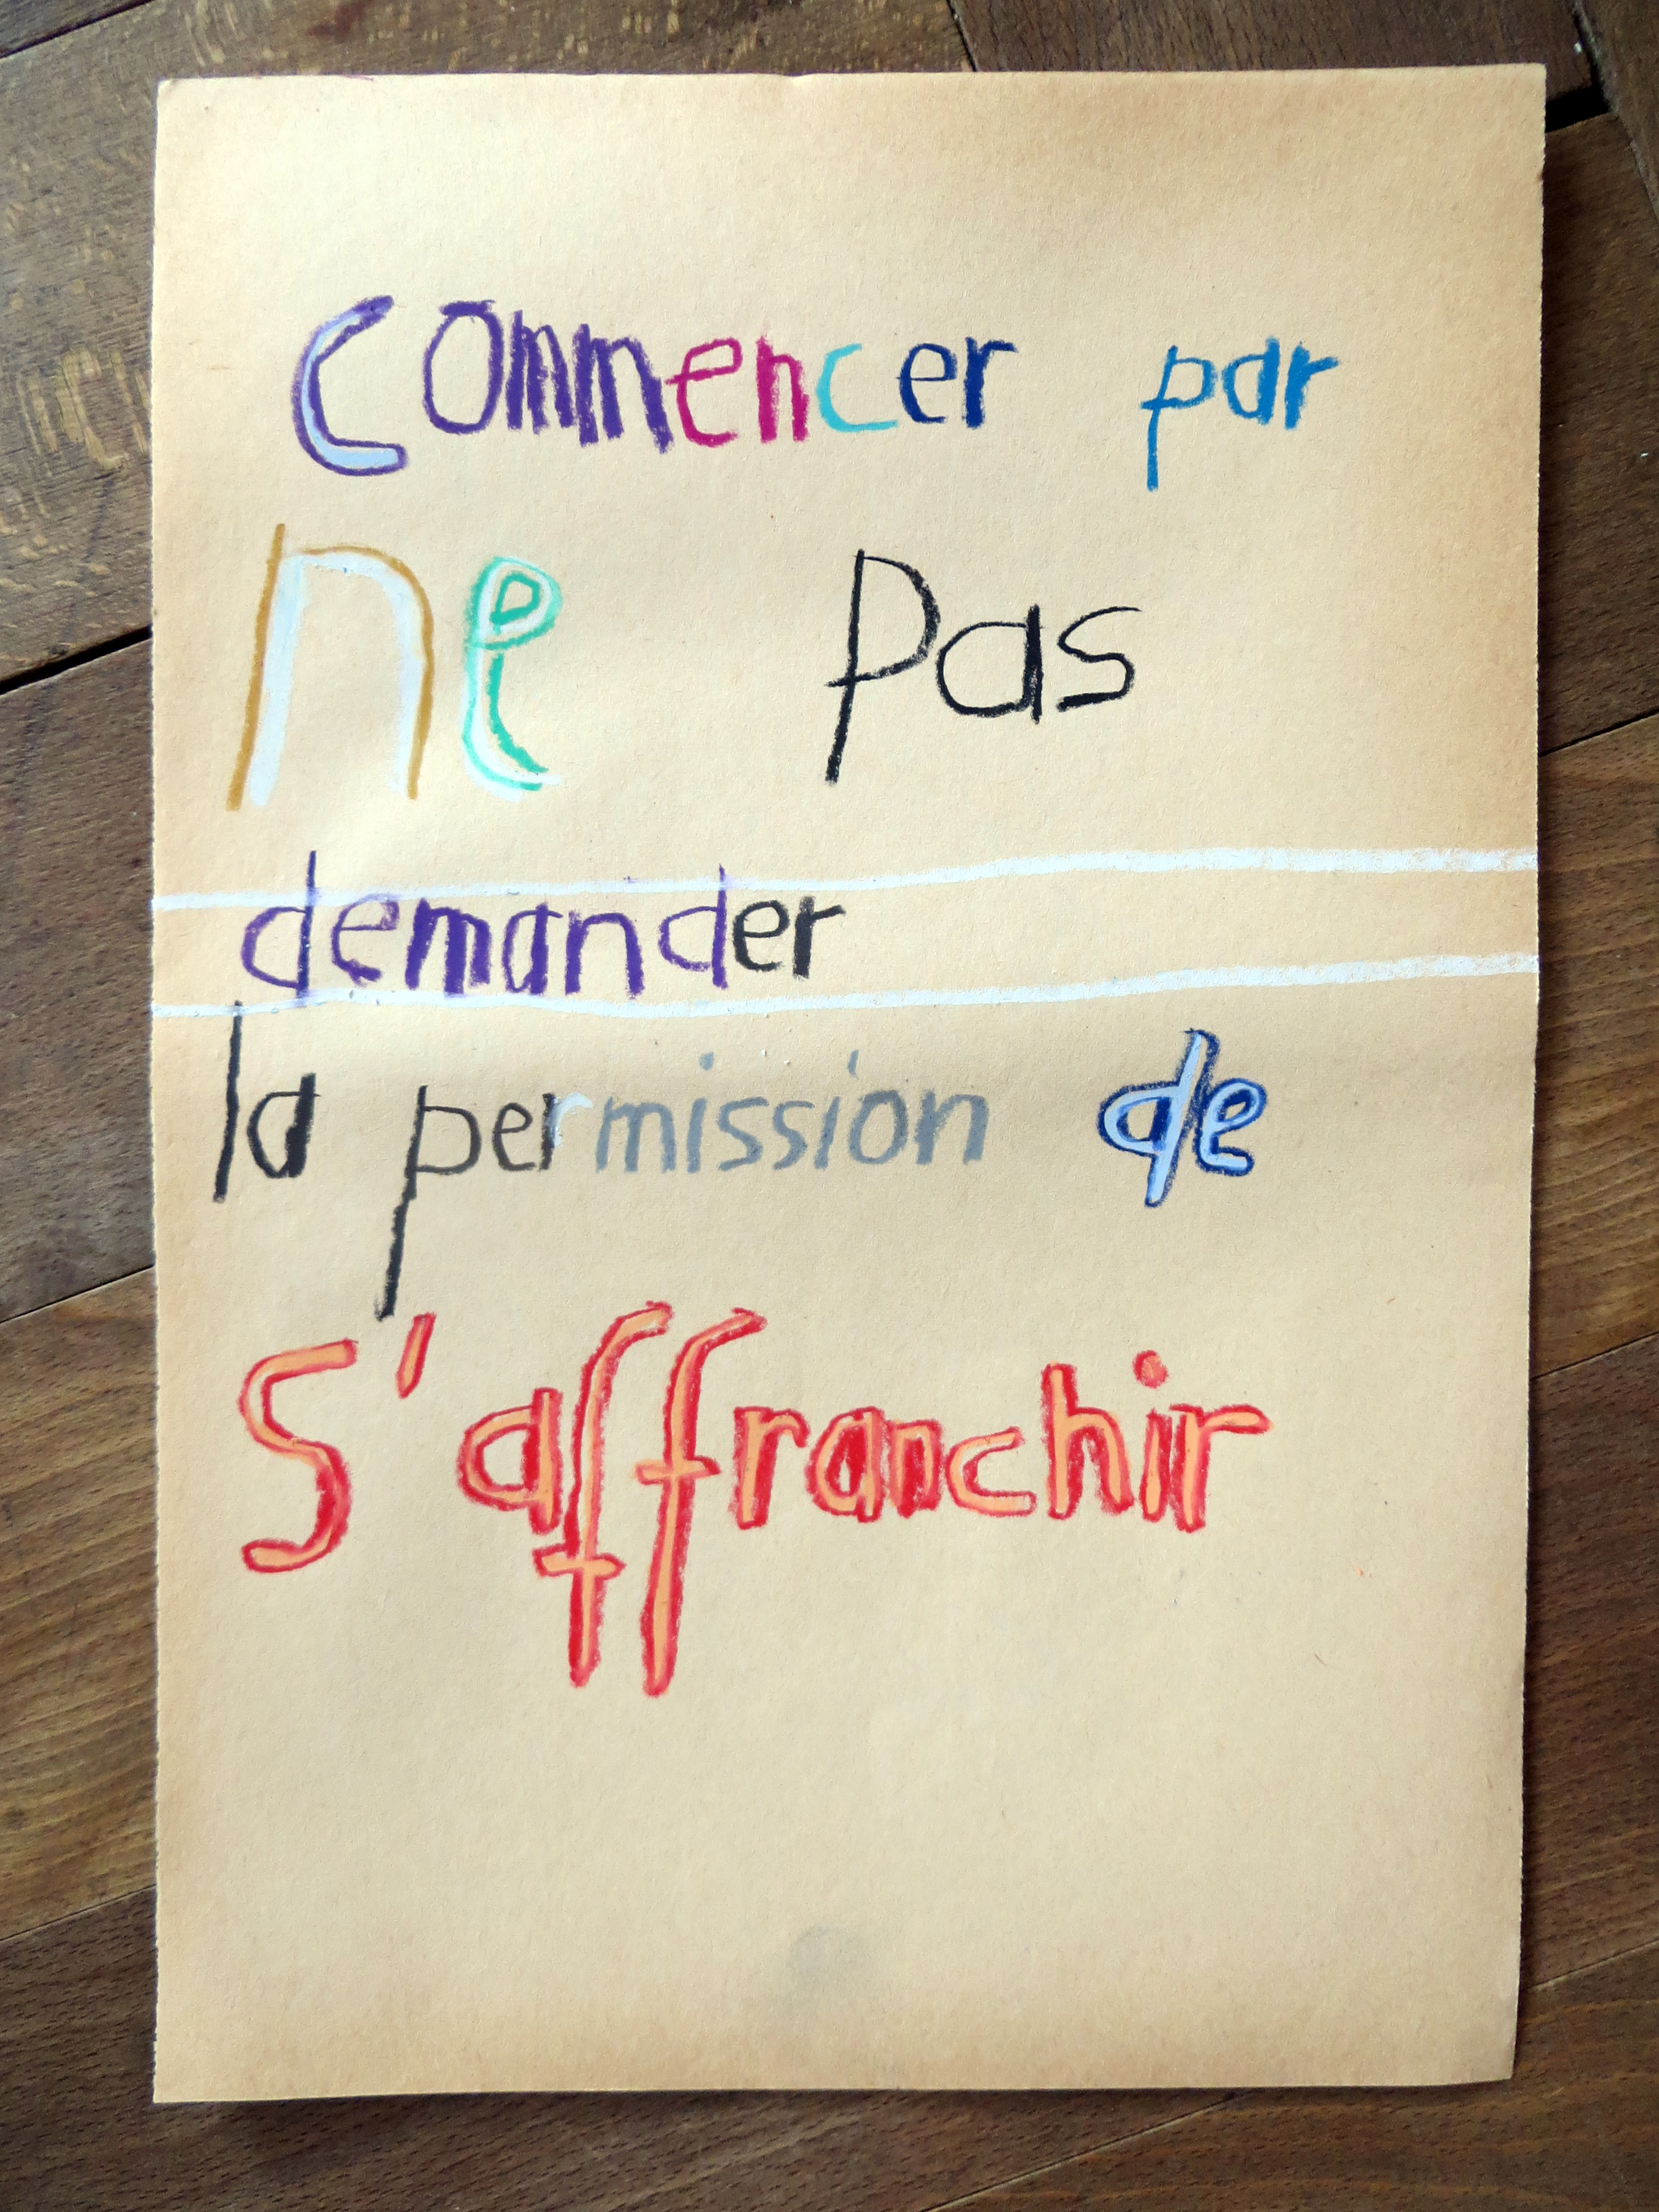 Commencer par
ne pas
demander
la permission de
S'affranchir